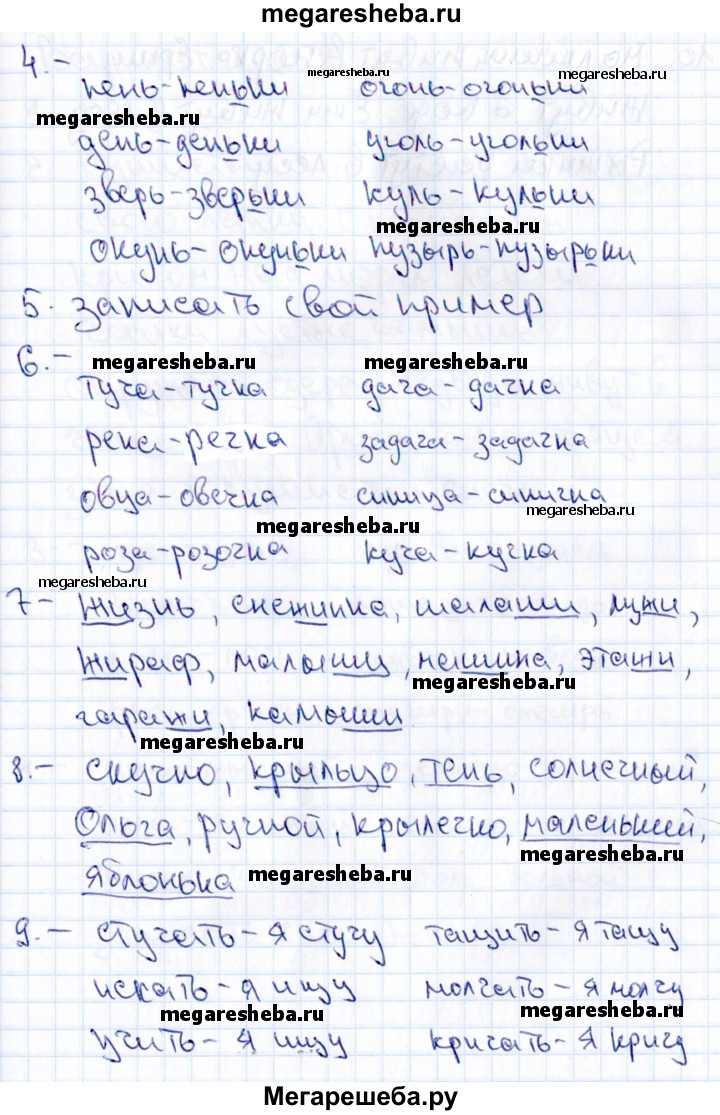 megaresheba.ru
4.-
пень-пеньки огонь-огоньки
megaresheba.ru
megaresheba.ru
megaresheba.ru
день-деньки уголь-угольки
зверь-зверьки куль-кульки
megaresheba.ru
окунь-окуньки пузырь-пузырьки
5. записать свой пример
6.-
megaresheba.ru megaresheba.ru
туча-тучка дача-дачка
река-речка задача-задачка
овца-овечка синица-синичка
megaresheba.ru
megaresheba.ru
роза-розочка куча-кучка
megaresheba.ru
7- Жизнь, снежинка, шалаши, лужи,
жираф, малыши, машина, этажи,
megaresheba.ru
гаражи, камыши
megaresheba.ru
8.- скучно, крыльцо, тень, солнечный,
Ольга, ручной, крылечко, маленький,
megaresheba.ru
яблонька megaresheba.ru
9.- стучать-я стучу тащить-я тащу
искать-я ищу молчать-я молчу
megaresheba.ru megaresheba.ru
учить-я ищу кричать-я кричу
Мегарешеба.ру